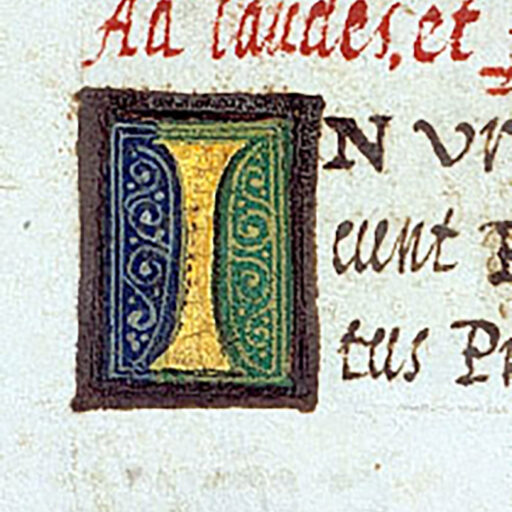 Ad laudes, et
IN
eunt
tus